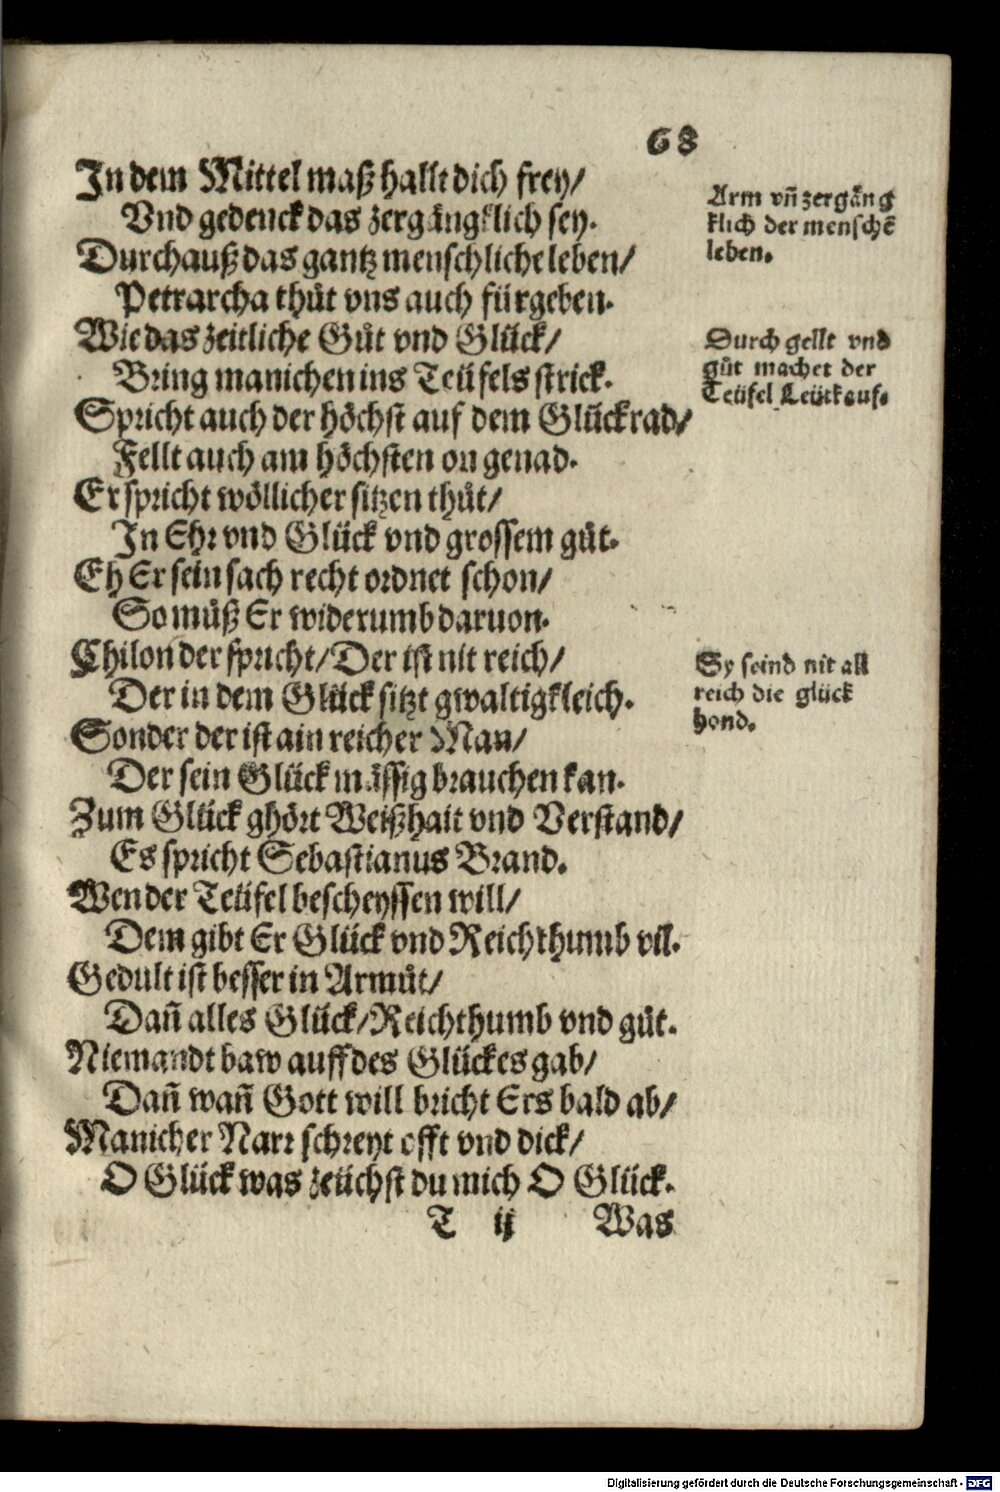 68
In dem Mittel maß hallt dich frey/
Vnd gedenck das zergångklich sey.
Durchauß das gantz menschliche leben/
Petrarcha thůt vns auch fürgeben.
Wie das zeitliche Gůt vnd Glück/
Bring manichen ins Teüfels strick.
Spricht auch der höchst auf dem Glückrad/
Fellt auch am höchsten on genad.
Er spricht wöllicher sitzen thůt/
In Ehr vnd Glück vnd grossem gůt.
Eh Er sein sach recht ordnet schon/
So můß Er widerumb daruon.
Chilon der spricht/Der ist nit reich/
Der in dem Glück sitzt gwaltigkleich.
Sonder der ist ain reicher Man/
Der sein Glück måssig brauchen kan.
Zum Glück ghört Weißhait vnd Verstand/
Es spricht Sebastianus Brand.
Wen der Teüfel bescheyssen will/
Dem gibt Er Glück vnd Reichthumb vil.
Gedult ist besser in Armůt/
Dañ alles Glück/Reichthumb vnd gůt.
Niemandt baw auff des Glückes gab/
Dañ wañ Gott will bricht Ers bald ab/
Manicher Narr schreyt offt vnd dick/
O Glück was zeüchst du mich O Glück.
T ij Was
Arm vñ zergång
klich der menschē
leben.
Durch gellt vnd
gůt machet der
Teüfel Leüt auf.
Sy seind nit all
reich die glück
hond.
Digitalisierung gefördert durch die Deutsche Forschungsgemeinschaft - DFG